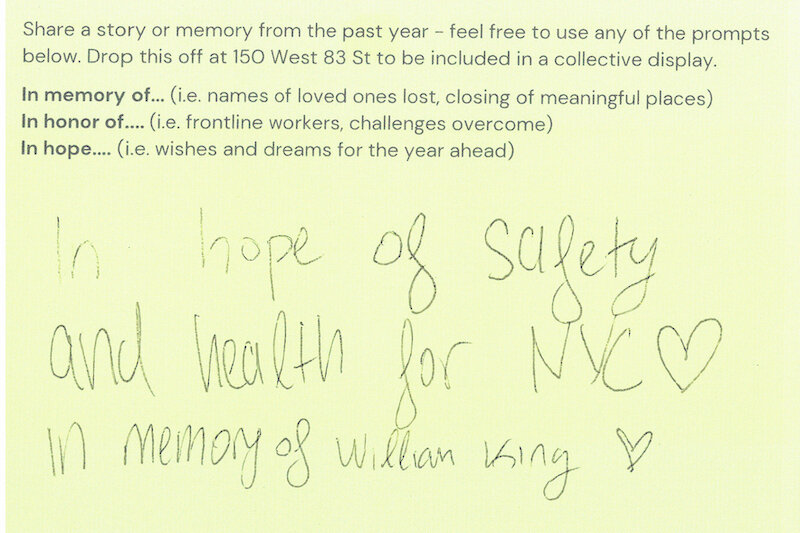 Share a story or memory from the past year – feel free to use any of the prompts
below. Drop this off at 150 West 83 St to be included in a collective display.
In memory of... (i.e. names of loved ones lost, closing of meaningful places)
In honor of.... (i.e. frontline workers, challenges overcome)
In hope.... (i.e. wishes and dreams for the year ahead)
In hope of safety
and health for NYC
In memory of Willian King